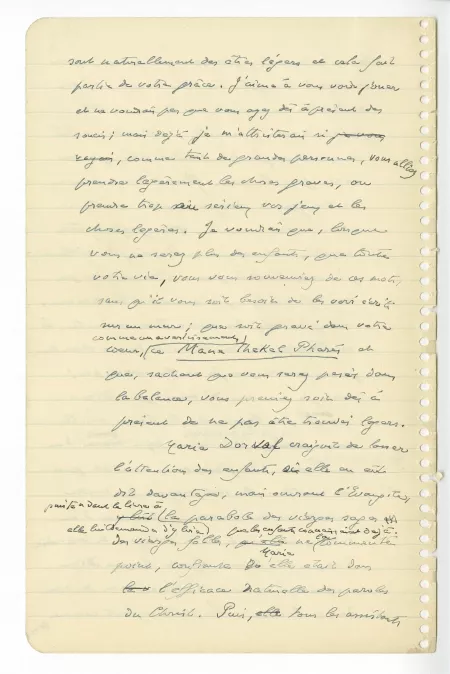 sont naturellement des êtres légers et cela fait
partie de votre grâce. J'aime à vous voir jouer
et ne voudrais pas que vous ayez dès à présent des
soucis; mais déjà je m'attristerais si je vous
voyais, comme tant de grandes personnes, vous alliez
prendre légèrement les choses graves, ou
prendre trop au sérieux vos jeux et les
choses légères. Je voudrais que, lorsque
vous ne serez plus des enfants, que toute
votre vie, vous vous souveniez de ces mots,
sans qu'il vous soit besoin de les voir écrits
sur un mur; que soit gravé dans votre
comme un avertissement,
coeur, ce Mane Thekel Pharès et
que, sachant que vous serez pesés dans
la balance, vous preniez soin dès à
présent de ne pas être trouvés légers.
Maria Dorval craignit de lasser
l'attention des enfants, si elle en eût
dit davantage; mais ouvrant l'Evangile,
puis tendant le livre à
(la parabole des vierges sages et
elle lui demanda d'y lire) que les enfants connaissaient déjà
des vierges folles, ne commenta
Maria
point, confiante elle était dans
l'efficace naturelle des paroles
du Christ. Puis, elle tous les assistants